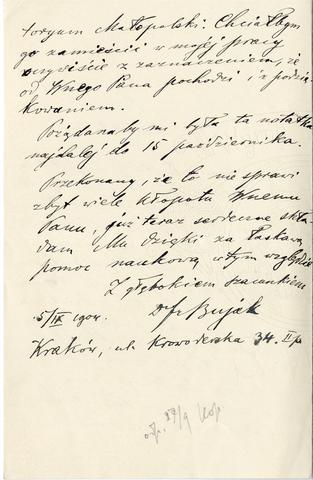 toryum Małopolski. Chciałbym
go zamieścić w mojej pracy
oczywiście z zaznaczeniem, że
od Wnego Pana pochodzi i z podzię-
kowaniem.
Pożądana by mi była ta notatka
najdalej do 15 października.
Przekonany, że to nie sprawi
zbyt wiele kłopotu Wnemu
Panu, już teraz serdeczne skła-
dam Mu dzięki za łaskawą
pomoc naukową w tym względzie
Z głębokiem szacunkiem
5/IX 1904. Dr Fr Bujak
Kraków, ul. Krowoderska 34. II p
odp. 29/9